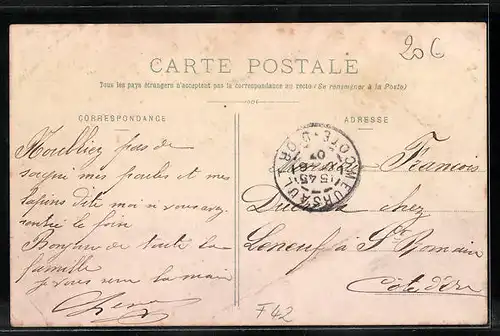 206
CARTE POSTALE
Tous les pays étrangers n'acceptent pas la correspondance au recto (Se renseigner à la Poste)
CORRESPONDANCE
ADRESSE
Noubliez pas de
soigni mes poules et mes
lapins dite moi si vous avez
rentré le foin
Bonjour de toute la
famille
je vous serre la main
MEURSAULT
CÔTE-D'OR
15 45
07
François
chez
Leneuf à St Romain
Côte d'Or
F42